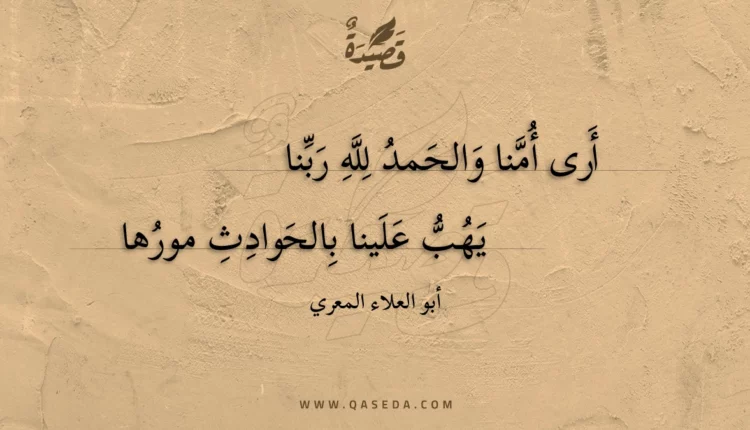 قَصِيدَةٌ
أَرى أُمَّنا وَالحَمدُ لِلَّهِ رَبِّنا
يَهُبُّ عَلَينا بِالحَوادِثِ مورُها
أبو العلاء المعري
WWW.QASEDA.COM